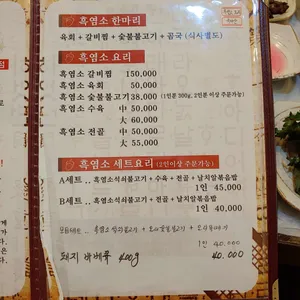 흑염소 한마리
육회 + 갈비찜 + 숯불불고기 + 곰국 (식사별도)
흑염소 요리
흑염소 갈비찜 150,000
흑염소 육회 50,000
흑염소 숯불불고기 38,000 (1인분 300g, 2인분 이상 주문가능)
흑염소 수육 中 50,000
大 60,000
흑염소 전골 中 50,000
大 55,000
흑염소 세트요리 (2인이상 주문가능)
A세트 .. 흑염소석쇠불고기 + 수육 + 전골 + 날치알볶음밥
1인 45,000
B세트 .. 흑염소석쇠불고기 + 전골 + 날치알볶음밥
1인 40,000
1인 40,000
돼지 바베큐 400g 40,000